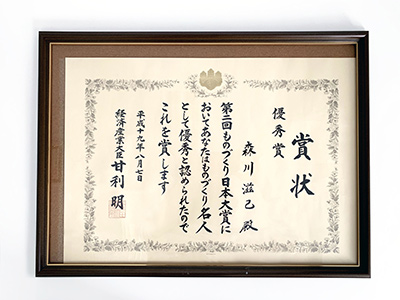 賞状
優秀賞
森川滋己殿
第二回ものづくり日本大賞に
おいてあなたはものづくり名人
として優秀と認められたので
これを賞します
平成十九年八月七日
経済産業大臣 甘利明